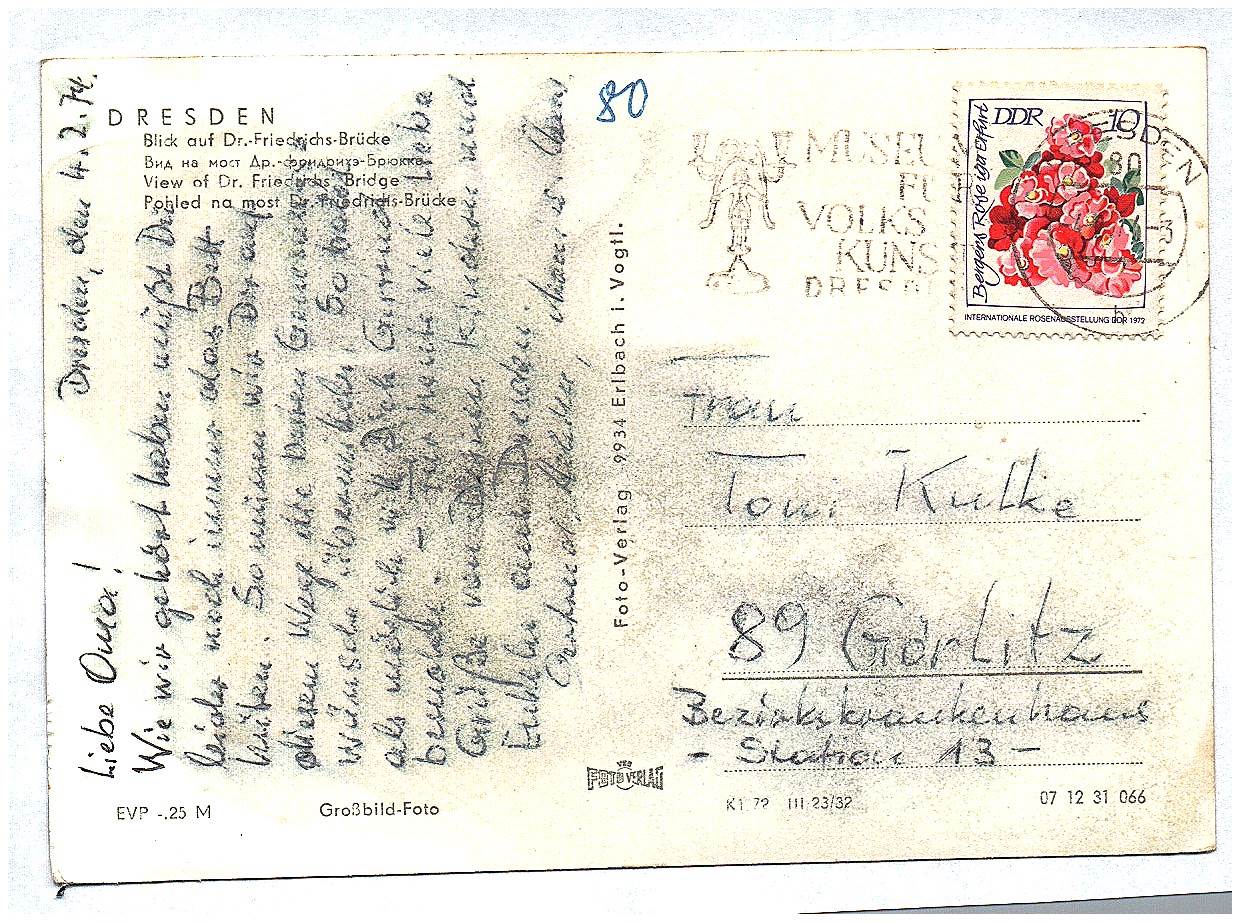 DRESDEN
Blick auf Dr.-Friedrichs-Brücke
Вид на мост Др.-Фридрихэ-Брюкке
View of Dr. Friedrichs Bridge
Pohled na most Dr.-Friedrichs-Brücke
Dresden, den 4.2.74.
Liebe Oma!
Wie wir gehört haben mußt Du
leider noch immer das Bett
hüten. So müssen wir Dir auf
diesem Weg die besten
wünsche übermitteln. So bald
als möglich will Dich Carmen
besuchen. – Für heute viele liebe
Grüße von Deinen Kindern und
Enkeln aus Dresden.
EVP -.25 M
Großbild-Foto
Foto-Verlag 9934 Erlbach i. Vogtl.
FOTO VERLAG
80
MUSEU
FÜ
VOLKS
KUNS
DRESD
DDR 10
Bergers Rose iga Erfurt
INTERNATIONALE ROSENAUSSTELLUNG DDR 1972
Frau
Toni Kulke
89 Görlitz
Bezirkskrankenhaus
- Station 13 -
K1 72 III 23/32
07 12 31 066